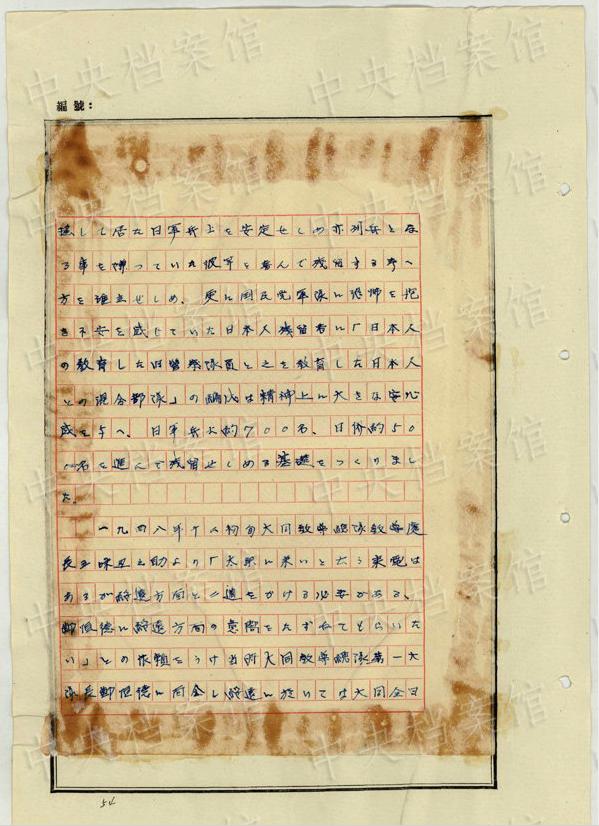 編號：
して居た日軍兵士を安定せしめ亦列兵とな
る事を嫌っていた彼等を喜んで残留する考へ
方を確立せしめ、更に国民党軍隊に恐怖を抱
き不安を感じていた日本人残留者に「日本人
の教育した旧警察隊員と之を教育した日本人
との混合部隊」の編成は精神上に大きな安心
感を与へ、日軍兵士約700名、日僑約50
0名を進んで残留せしめる基礎をつくりまし
た。
一九四八年十一月初旬大同教導総隊教導処
長五味丑之助より「太原に来いと云う来電は
あるが綏遠方面と二道をかける必要がある、
鄭恒徳に綏遠方面の意向をたずねてもらいた
い」との依頼をうけ当所大同教導総隊第一大
隊長鄭恒徳に面会し綏遠に於いては大同全日
54
中央档案馆